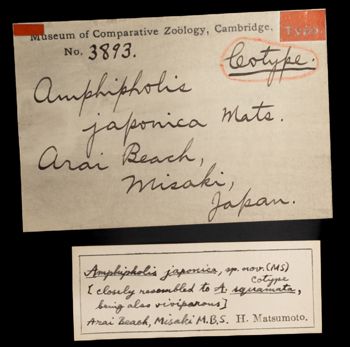 Museum of Comparative Zoölogy, Cambridge.
Type.
No. 3893.
Cotype.
Amphipholis
japonica Mats.
Arai Beach,
Misaki,
Japan.
Amphipholis japonica, sp. nov. (MS)
cotype
[closely resembled to A. squamata,
being also viviparous]
Arai Beach, Misaki M.B.S. H. Matsumoto.